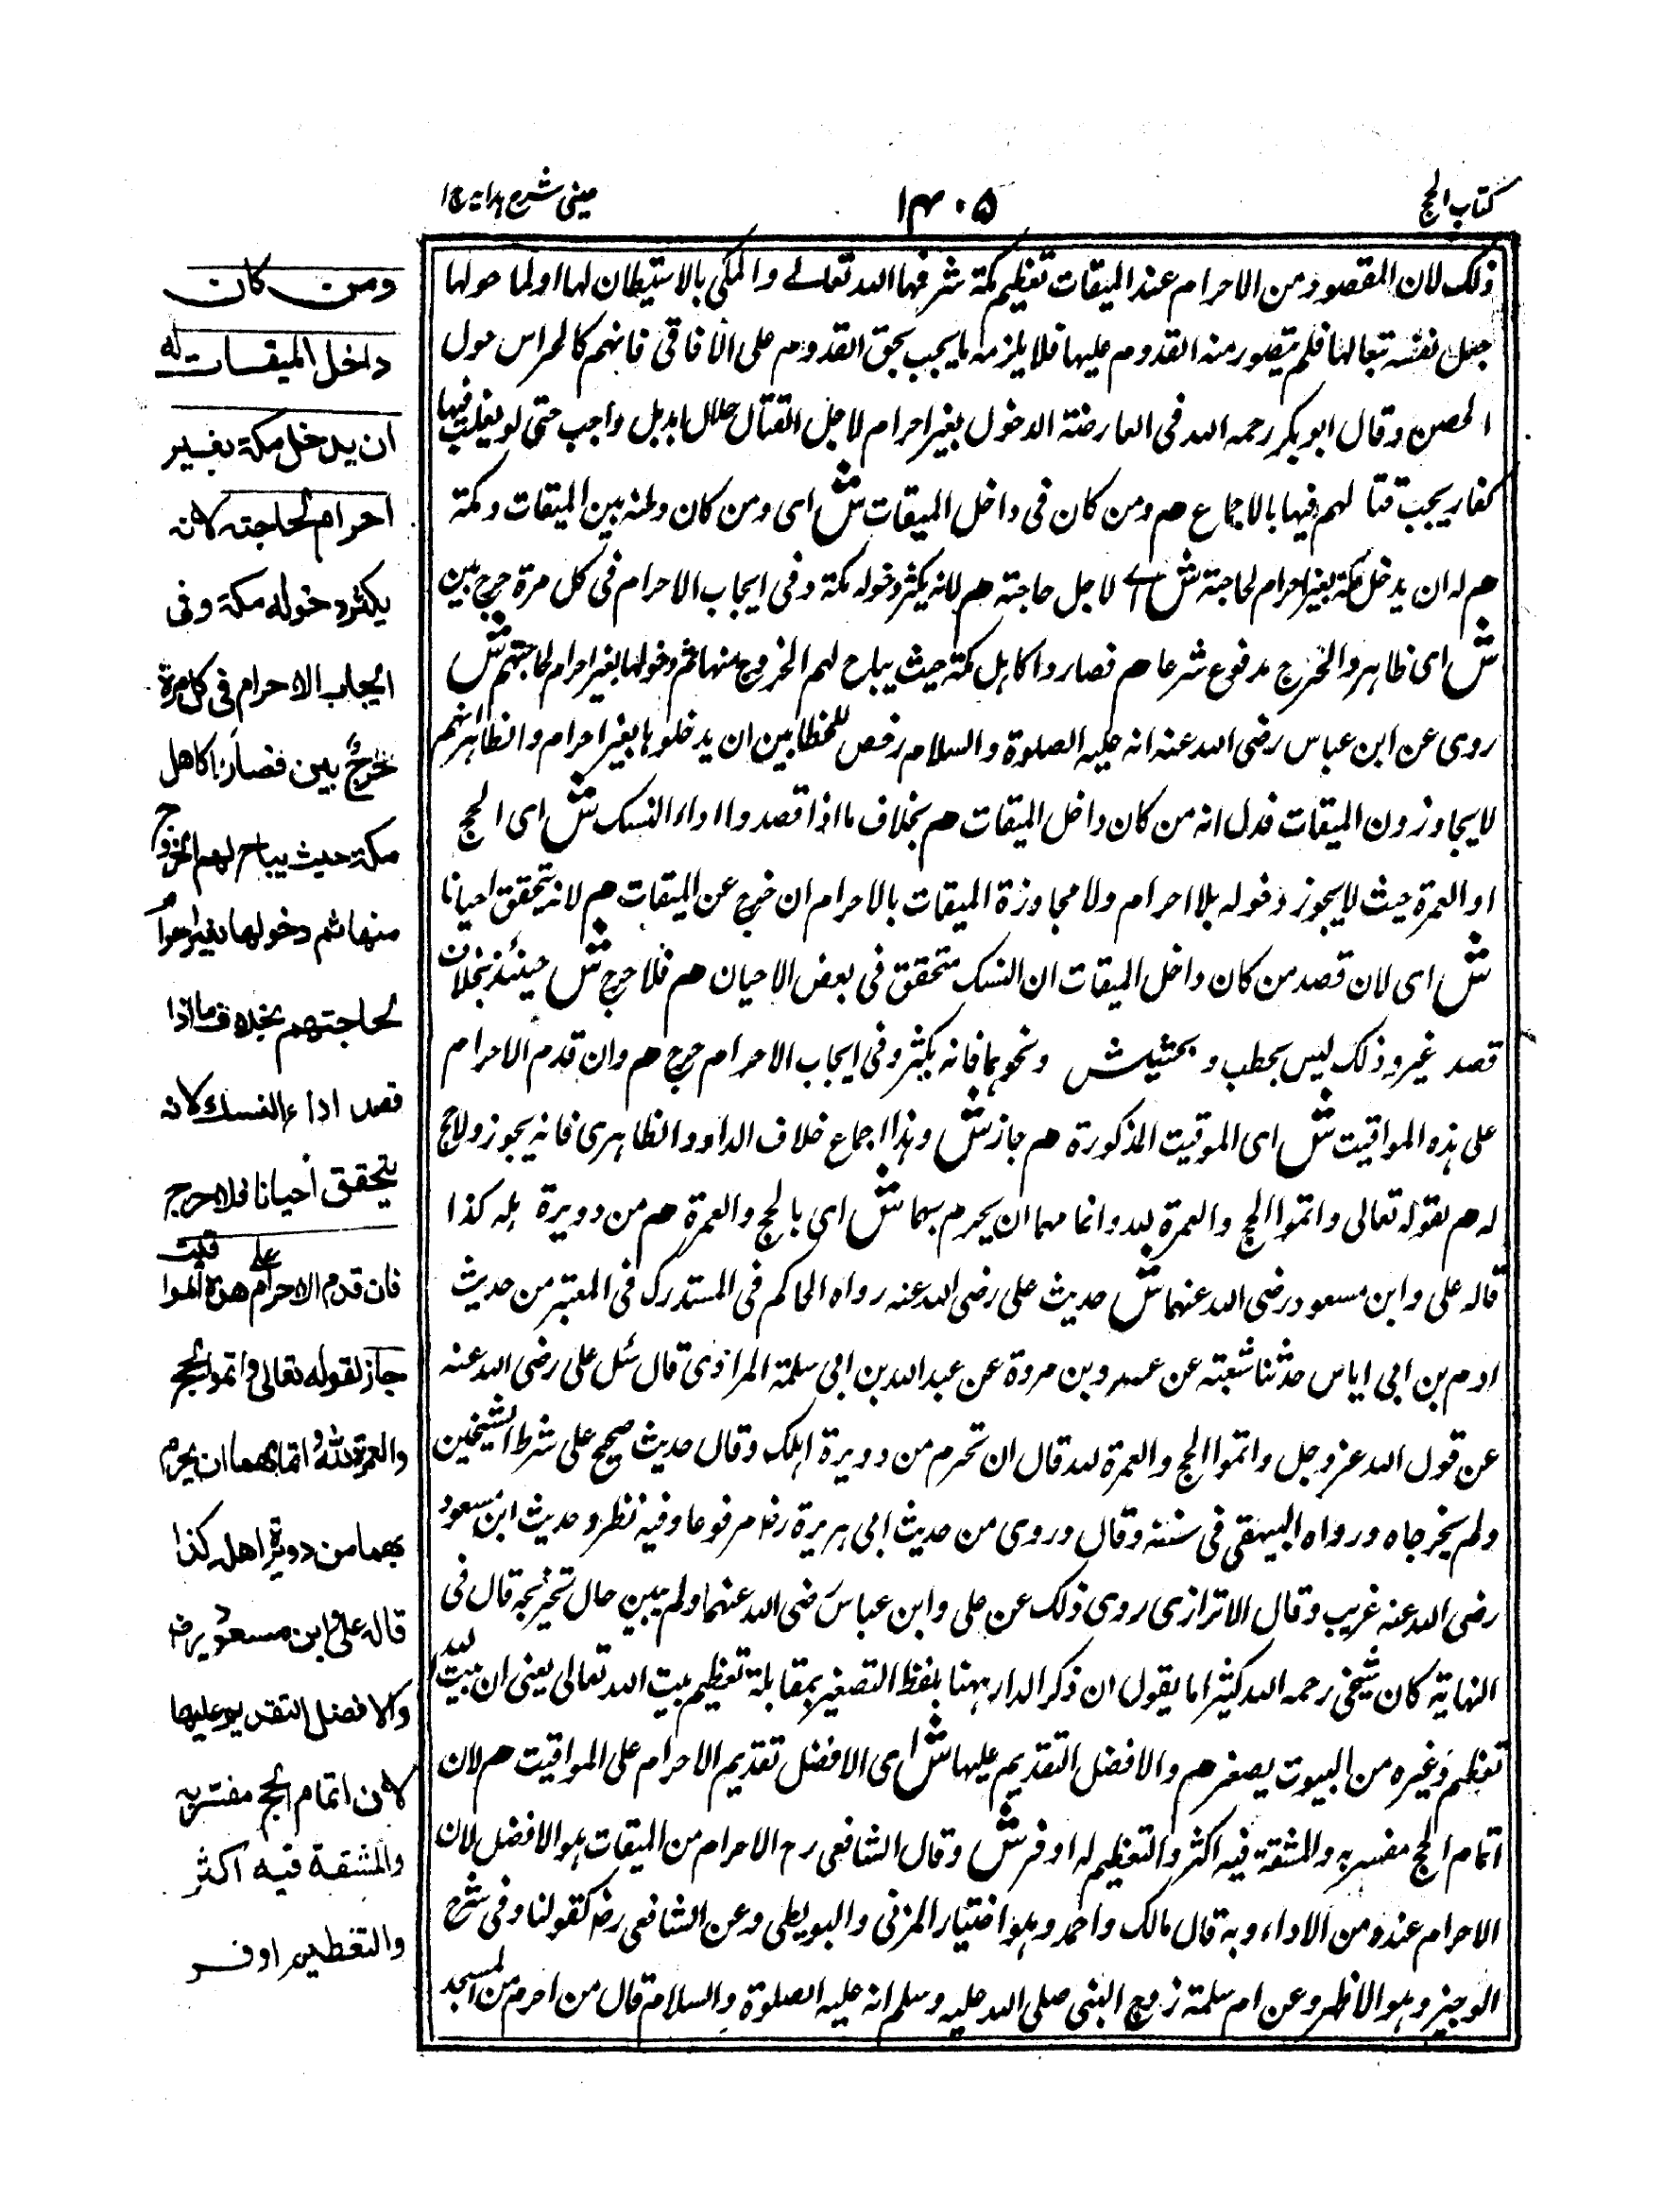 كتاب الحج
١٤٠٥
عینی شرح ہدایہ ج ا
ذلک لان المقصود من الاحرام عند المیقات تعظیم مکة شرفها الله تعالے والمکی بالاستیطان لها او لما حولها
جعل نفسه تبعا لها فلم یتصور منه القدوم علیها فلا یلزمه ما یجب بحق القدوم علی الآفاقی فانهم کالحراس حول
الحصن وقال ابو بکر رحمه الله فی العارضة الدخول بغیر احرام لاجل القتال حلال ابدا بل واجب حتی لو یغلب فیها
کفار یجب قتا لهم فیها بالاجماع هم ومن کان فی داخل المیقات ش ای ومن کان وطنه بین المیقات ومکة
هم له ان یدخل مکة بغیر احرام لحاجة ش اے لاجل حاجته هم لانه یکثر دخوله مکة وفی ایجاب الاحرام فی کل مرة حرج بین
ش ای ظاهر والحرج مدفوع شرعا هم فصاروا کاهل مکة حیث یباح لهم الخروج منها ثم دخولها بغیر احرام لحاجتهم ش
روی عن ابن عباس رضی الله عنه انه علیه الصلوة والسلام رخص للحطابین ان یدخلوها بغیر احرام والظاهر انهم
لا یجاوزون المیقات فدل انه من کان داخل المیقات هم بخلاف ما اذا قصدوا اداء النسک ش ای الحج
او العمرة حیث لا یجوز دخوله بلا احرام ولا مجاوزة المیقات بالاحرام ان خرج عن المیقات هم لانه یتحقق احیانا
ش ای لان قصد من کان داخل المیقات ان النسک متحقق فی بعض الاحیان هم فلا حرج ش حینئذ بخلاف
قصد غیره وذلک لیس بحطب و بحشیش ونحوهما فانه یکثر وفی ایجاب الاحرام حرج هم وان قدم الاحرام
علی هذه المواقیت ش ای الموقیت المذکورة هم جاز ش وهذا اجماع خلاف الداود الظاهری فانه یجوز ولا حج
له هم لقوله تعالی واتموا الحج والعمرة لله واتمامهما ان یحرم بهما ش ای بالحج والعمرة هم من دویرة اهله کذا
قاله علی وابن مسعود رضی الله عنهما ش حدیث علی رضی الله عنه رواه الحاکم فی المستدرک فی المعتبر من حدیث
ادم بن ابی ایاس حدثنا شعبة عن عمرو بن مروة عن عبد الله بن ابی سلمة المرادی قال سئل علی رضی الله عنه
عن قول الله عز وجل واتموا الحج والعمرة لله قال ان تحرم من دویرة اهلک وقال حدیث صحیح علی شرط الشیخین
ولم یخرجاه ورواه البیهقی فی سننه وقال وروی من حدیث ابی هریرة رض مرفوعا وفیه نظر وحدیث ابن مسعود
رضی الله عنه غریب وقال الاترازی روی ذلک عن علی وابن عباس رضی الله عنهما ولم یبین حال تخریجه قال فی
النهایة کان شیخی رحمه الله کثیرا ما یقول ان ذکر الدار ههنا بلفظ التصغیر بمقابلة تعظیم بیت الله تعالی یعنی ان بیت الله
تعظیم وغیره من البیوت یصغر هم والافضل التقدیم علیها ش ای الافضل تقدیم الاحرام علی المواقیت هم لان
اتمام الحج مفسر به والمشقة فیه اکثر والتعظیم له اوفر ش وقال الشافعی رح الاحرام من المیقات هو الافضل لان
الاحرام عنده من الاداء وبه قال مالک واحمد وهو اختیار المزنی والبویطی وعن الشافعی رض کقولنا وفی شرح
الوجیز وهو الاظهر وعن ام سلمة زوج النبی صلی الله علیه وسلم انه علیه الصلوة والسلام قال من احرم من المسجد
ومن كان
داخل الميقات له
ان يدخل مكة بغير
احرام لحاجته لانه
يكثر دخوله مكة وفي
ايجاب الاحرام في كل مرة
حرجٌ بين فصاركاهل
مكة حيث يباح لهم الخروج
منها ثم دخولها بغير احرام
لحاجتهم بخلاف ما اذا
قصد اداء النسك لانه
يتحقق أحيانا فلا حرج
فان قدم الاحرام على هذه المواقيت
جاز لقوله تعالى واتموا الحج
والعمرة لله واتمامهما ان يحرم
بهما من دويرة اهله كذا
قاله على وابن مسعود رض
والافضل التقديم عليها
لان اتمام الحج مفسر به
والمشقة فيه اكثر
والتعظيم اوفر